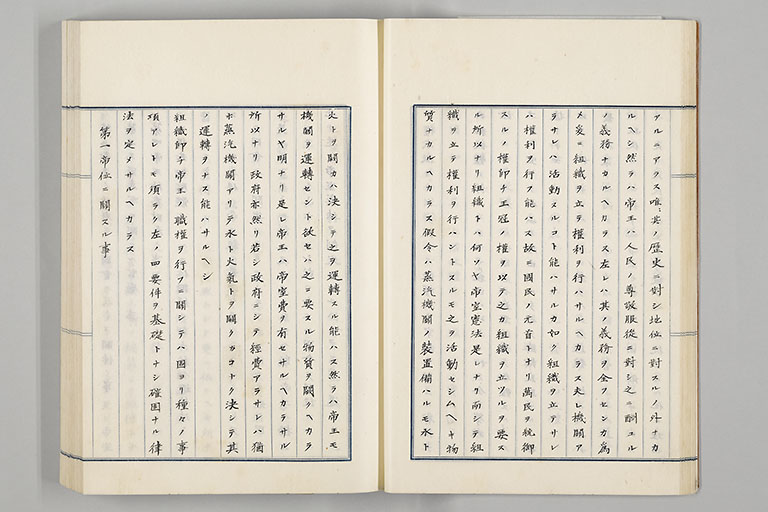 アルニアラス唯其ノ歴史ニ對シ地位ニ對スルノ外ナカ
ルヘシ然ラハ帝王ハ人民ノ尊敬服從ニ對シ之ニ酬ユル
ノ義務ナカルヘカラス左レハ其ノ義務ヲ全フセンカ爲
メ爰ニ組織ヲ立テ權利ヲ行ハサルヘカラス夫レ機關ア
ラサレハ活動スルコト能ハサルカ如ク組織ヲ立テサレ
ハ權利ヲ行フ能ハス故ニ國民ノ元首トナリ萬民ヲ統御
スルノ權卽チ王冠ノ權ヲ以テ之カ組織ヲ立ツルヲ要ス
ル所以ナリ組織トハ何ソヤ帝室憲法是レナリ而シテ組
織ヲ立テ權利ヲ行ハントスルモ之ヲ活動セシムヘキ物
質ナカルヘカラス假令ハ蒸汽機關ノ裝置備ハルモ水ト
火トヲ闕カハ決シテ之ヲ運轉スル能ハス然ラハ帝王モ
機關ヲ運轉セント欲セハ之ニ要スル物質ヲ闕クヘカラ
サルヤ明ナリ是レ帝王ハ帝室費ヲ有セサルヘカラサル
所以ナリ政府亦然リ若シ政府ニシテ經費アラサレハ猶
ホ蒸汽機關アリテ水ト火氣トヲ闕クカコトク決シテ其
ノ運轉ヲナス能ハサルヘシ
組織卽チ帝王ノ職權ヲ行フニ關シテハ固ヨリ種々ノ事
項アレトモ須ラク左ノ四要件ヲ基礎トナシ確固ナル律
法ヲ定メサルヘカラス
第一帝位ニ關スル事